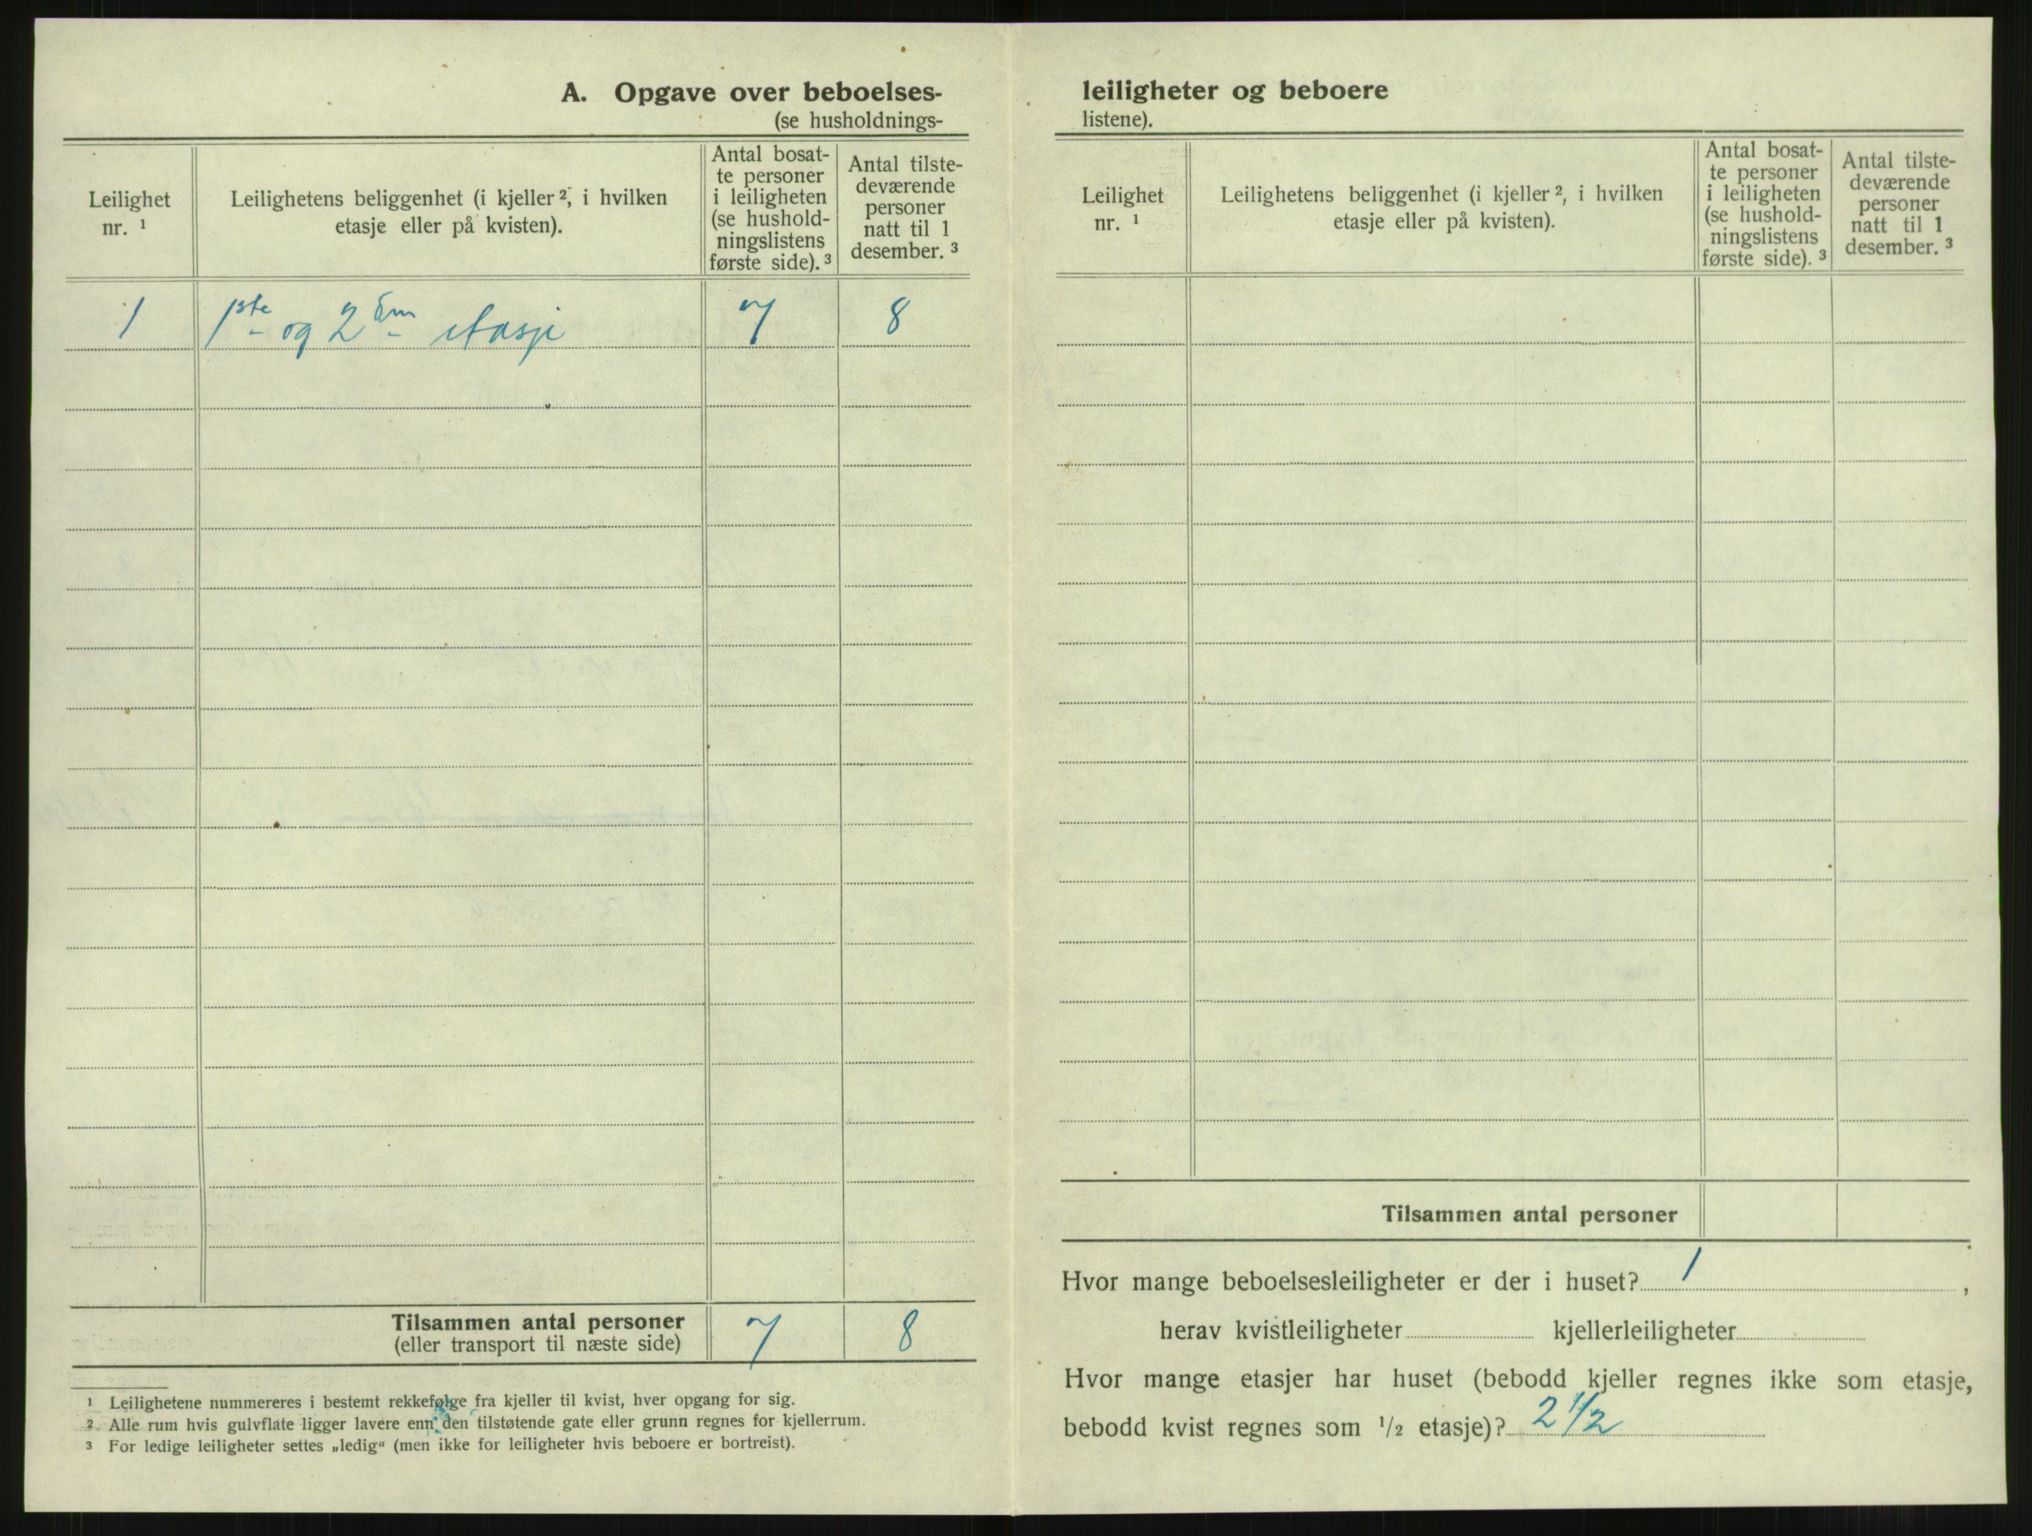 A. Opgave over beboelses-
(se husholdnings-
Leilighet
nr. ¹
Leilighetens beliggenhet (i kjeller ², i hvilken
etasje eller på kvisten).
Antal bosat-
te personer
i leiligheten
(se hushold-
ningslistens
første side). ³
Antal tilste-
deværende
personer
natt til 1
desember. ³
1 1ste og 2 em etasje 7 8
Tilsammen antal personer 7 8
(eller transport til næste side)
¹ Leilighetene nummereres i bestemt rekkefølge fra kjeller til kvist, hver opgang for sig.
² Alle rum hvis gulvflate ligger lavere enn den tilstøtende gate eller grunn regnes for kjellerrum.
³ For ledige leiligheter settes „ledig“ (men ikke for leiligheter hvis beboere er bortreist).
leiligheter og beboere
listene).
Leilighet
nr. ¹
Leilighetens beliggenhet (i kjeller ², i hvilken
etasje eller på kvisten).
Antal bosat-
te personer
i leiligheten
(se hushold-
ningslistens
første side). ³
Antal tilste-
deværende
personer
natt til 1
desember. ³
Tilsammen antal personer
Hvor mange beboelsesleiligheter er der i huset? 1 ,
herav kvistleiligheter kjellerleiligheter
Hvor mange etasjer har huset (bebodd kjeller regnes ikke som etasje,
bebodd kvist regnes som ½ etasje)? 2 1/2